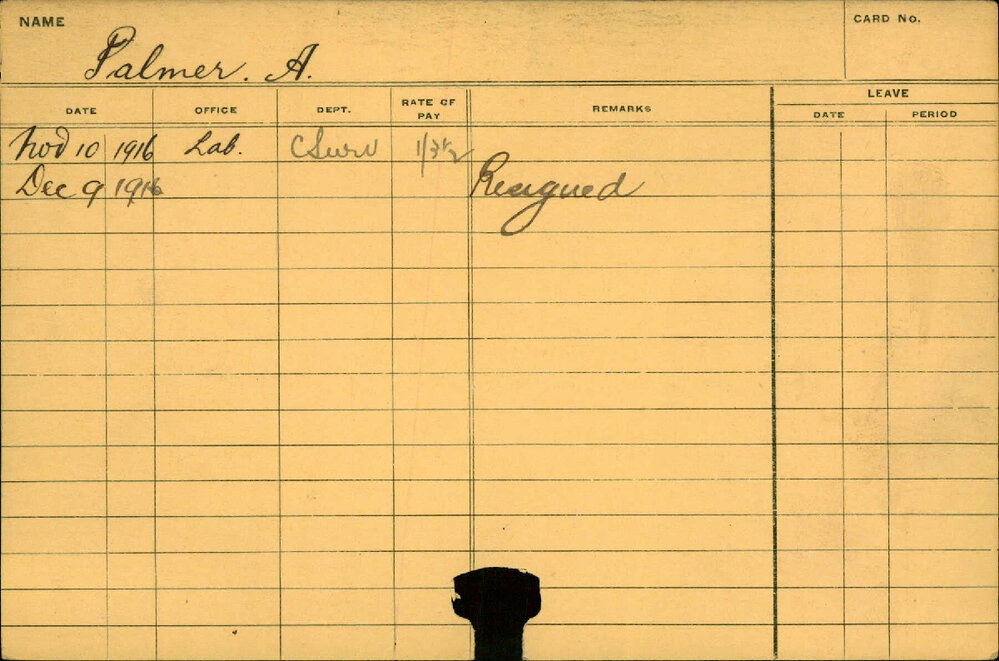 NAME
CARD No.
Palmer. A.
DATE OFFICE DEPT. RATE OF PAY REMARKS LEAVE
DATE PERIOD
Nov 10 1916 Lab. C Surv 1/3½
Dec 9 1916 Resigned